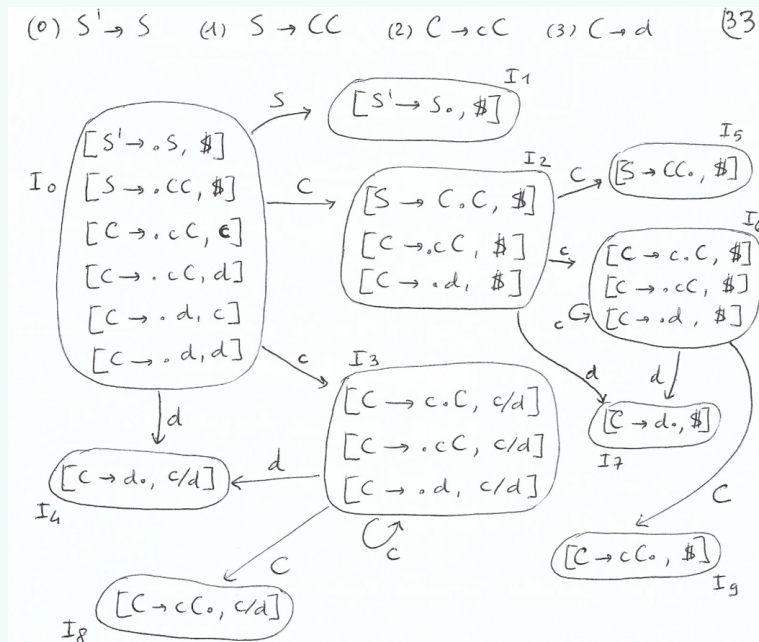 (0) S' → S (1) S → CC (2) C → cC (3) C → d 33
I0
[S' → .S, $]
[S → .CC, $]
[C → .cC, c]
[C → .cC, d]
[C → .d, c]
[C → .d, d]
S
I1
[S' → S., $]
C
I2
[S → C.C, $]
[C → .cC, $]
[C → .d, $]
C
I5
[S → CC., $]
c
I6
[C → c.C, $]
[C → .cC, $]
[C → .d, $]
c
c
I3
[C → c.C, c/d]
[C → .cC, c/d]
[C → .d, c/d]
c
d
d
[C → d., $]
I7
d
[C → d., c/d]
I4
d
C
[C → cC., $]
I9
C
[C → cC., c/d]
I8